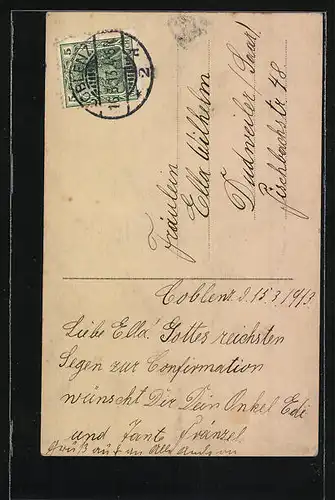 5
COBLENZ
Fräulein
Ella Wilhelm
Dudweiler (Saar)
Fischbachstr. 48.
Coblenz d. 15.3.1913.
Liebe Ella! Gottes reichsten
Segen zur Confirmation
wünscht Dir Dein Onkel Edi
und Tante Fränzel
Gruß auch an Alle